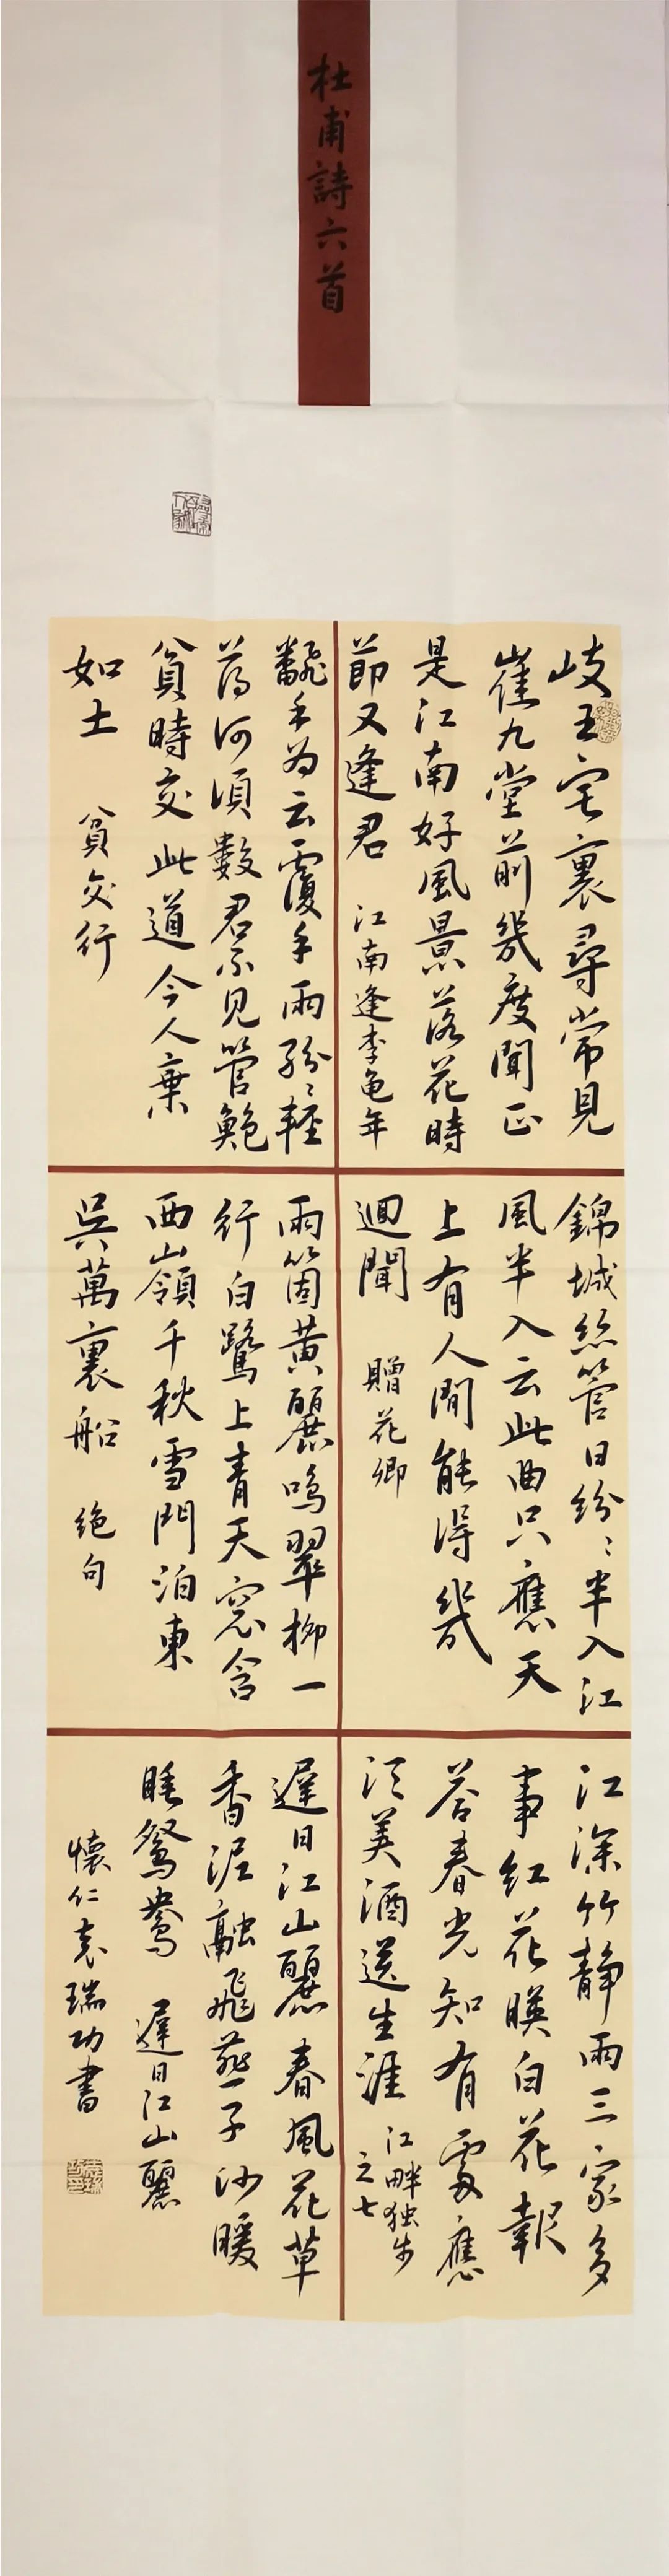 杜甫詩六首
岐王宅裏尋常見
崔九堂前幾度聞正
是江南好風景落花時
節又逢君
江南逢李龟年
翻手为云覆手雨紛〻輕
薄何須數君不見管鮑
貧時交此道今人棄
如土
貧交行
錦城絲管日紛〻半入江
風半入云此曲只應天
上有人間能得幾
迴聞
贈花卿
兩箇黄麗鸣翠柳一
行白鷺上青天窓含
西山嶺千秋雪門泊東
吴萬裏船
绝句
江深竹静兩三家多
事紅花暎白花報
答春光知有處應
須美酒送生涯
江畔独步
之七
遲日江山麗春風花草
香泥融飛燕子沙暖
睡鴛鴦
遲日江山麗
懷仁袁瑞功書